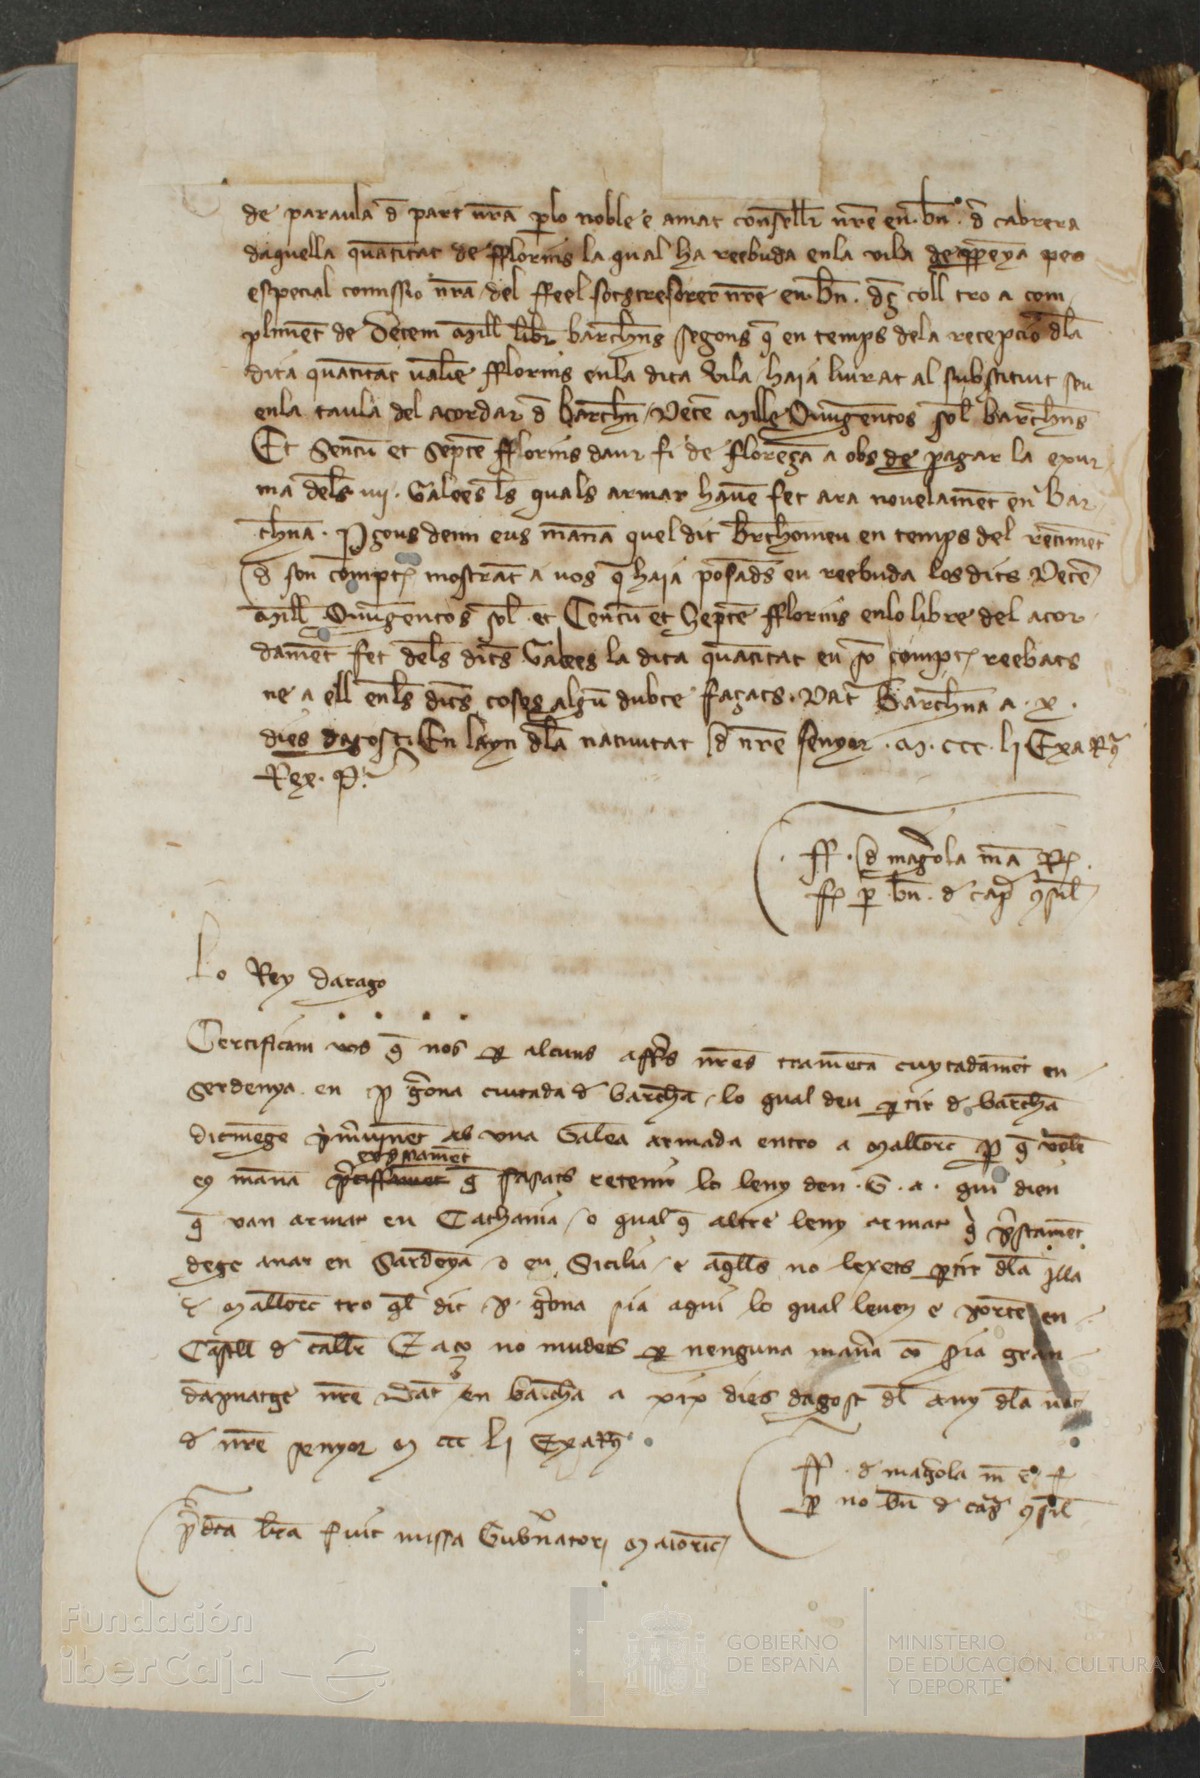 de paraula d part nra plo noble e amat consellr nre en bn. d cabrera
daquella quantitat de fflorins la qual ha reebuda en la vila de ppenya per
especial comissio nra del ffeel sotstresorer nre en bn. dç coll tro a com
pliment de Decem Mill libr barchns segons q en temps dela recepcio dla
dita quantitat valie fflorins en la dita vila haia liurat al substituit seu
en la taula del acordar d barchn Dece Mille Quingentos sol barchns
Et Centu et Septe fflorins daur fi de florença a obs de pagar la exur
ma dels iiij. Galees ls quals armar haue fet ara nouelament en Bar
chna. Pqueus deim eus mana quel dit brthomeu en temps del retiment
d son compt mostrat a vos q haia posads en reebuda los dits Dece
Mill Quingentos sol et Centu et Septe fflorins en lo libre del acor
dament fet dels dits Galees la dita quantitat en so compt reebats
ne a ell en ls dits coses algu dubte façats. Dat Barchna a. x.
dies dagost En layn dla natiuitat d nre senyor. M. ccc. lj Exa Rq
Rex. P.
ff. d magrola ma R
ff p bn. d cap qsil
Lo Rey Darago
Certificam vos q nos p alcuns affrs nres trameta cuytadament en
Serdenya en p grona ciutada d barchna lo qual deu ptir d barchna
dicmege pmrvinent ab vna Galea armada entro a Mallorc p q vole
eus mana pcissament expssament q façats retenir lo leny den. G. a. qui dien
q van armar en Cathania o qualq altre leny armar q pstament
dege anar en Sardenya o en Sicilia e aqlls no lexets ptir dla jlla
d Mallorc tro ql dit p. grona sia aqui lo qual leuen e porte en
Castll d callr E aço no mudets p nenguna manra co sia gran
dapnatge nre Dat en barchna a xix dies dagost dl any dla nat
d nre senyor M ccc lj Exa Rq
ff. d magrola m
p no bn d cap qsil
pdca lra fuit missa Gubnatori Maioric